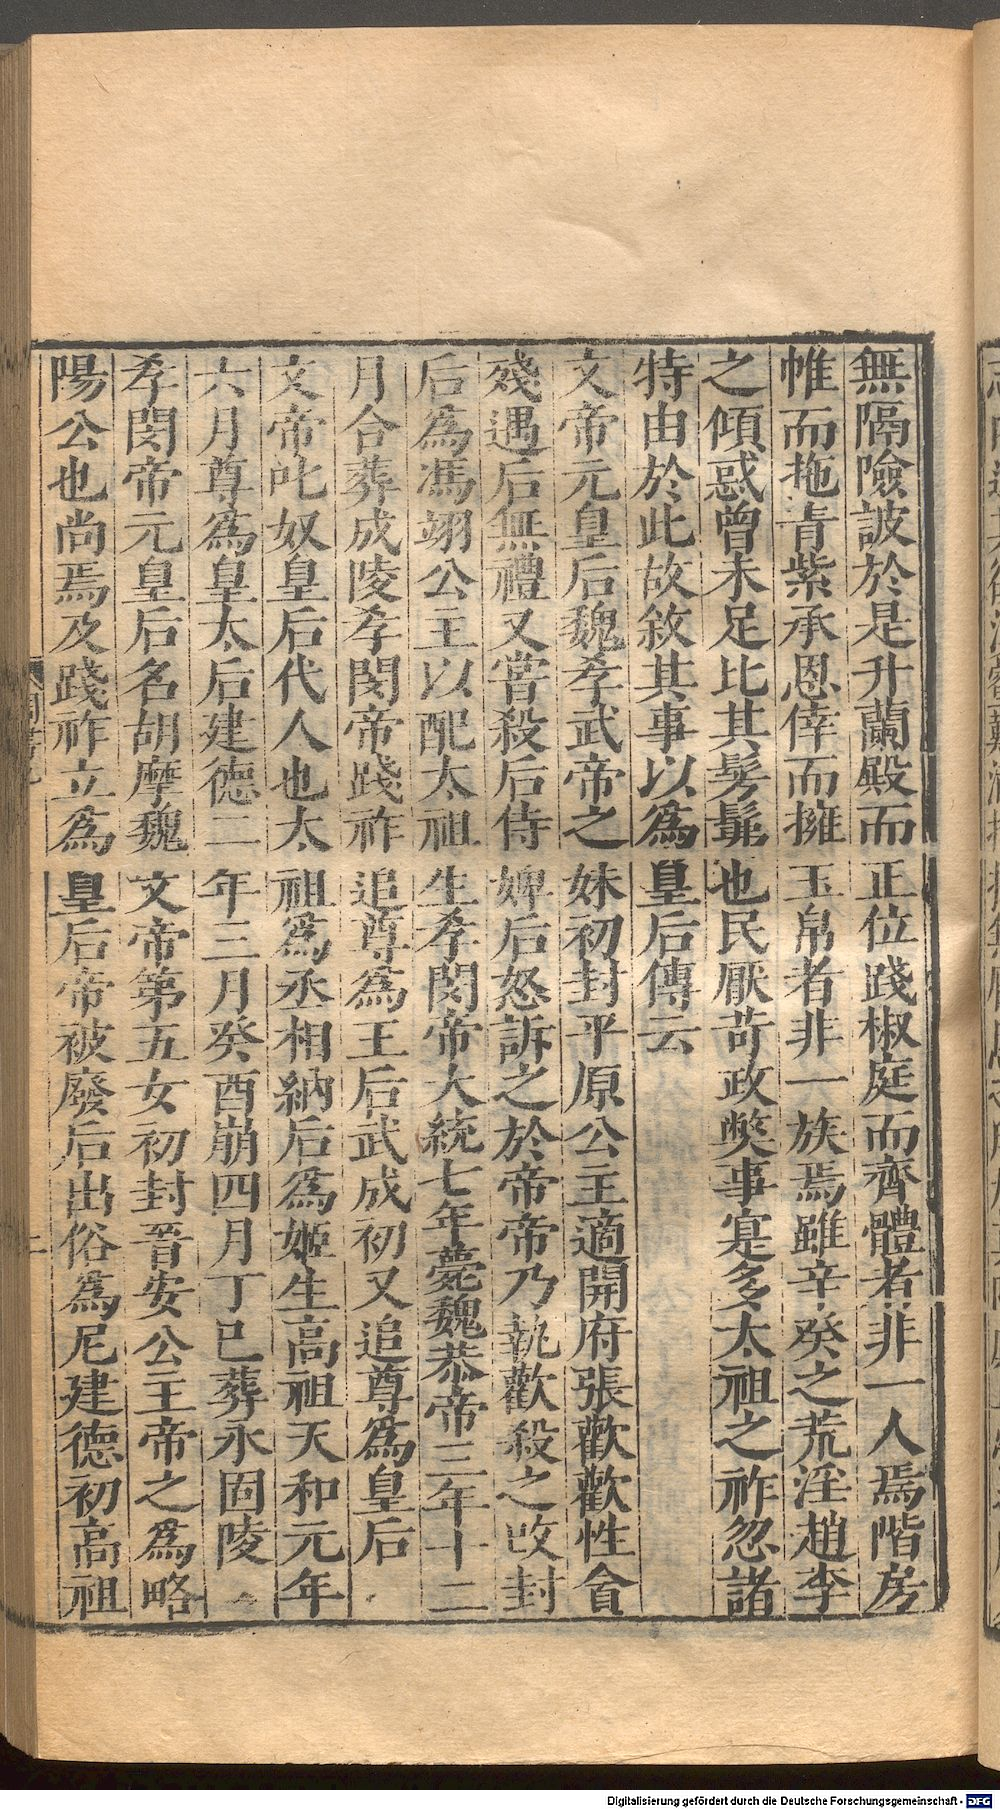 無隔險詖於是升蘭殿而正位踐椒庭而齊體者非一人焉階房
帷而拖青紫承恩倖而擁玉帛者非一族焉雖辛癸之荒淫趙李
之傾惑曾未足比其髣髴也民厭苛政弊事寔多太祖之祚忽諸
特由於此故敘其事以爲皇后傳云
文帝元皇后魏孝武帝之妹初封平原公主適開府張歡歡性貪
殘遇后無禮又嘗殺后侍婢后怒訴之於帝帝乃執歡殺之改封
后爲馮翊公主以配太祖生孝閔帝大統七年薨魏恭帝三年十二
月合葬成陵孝閔帝踐祚追尊爲王后武成初又追尊爲皇后
文帝叱奴皇后代人也太祖爲丞相納后爲姬生高祖天和元年
六月尊爲皇太后建德二年三月癸酉崩四月丁巳葬永固陵
孝閔帝元皇后名胡摩魏文帝第五女初封晉安公主帝之爲略
陽公也尚焉及踐祚立爲皇后帝被廢后出俗爲尼建德初高祖
Digitalisierung gefördert durch die Deutsche Forschungsgemeinschaft - DFG